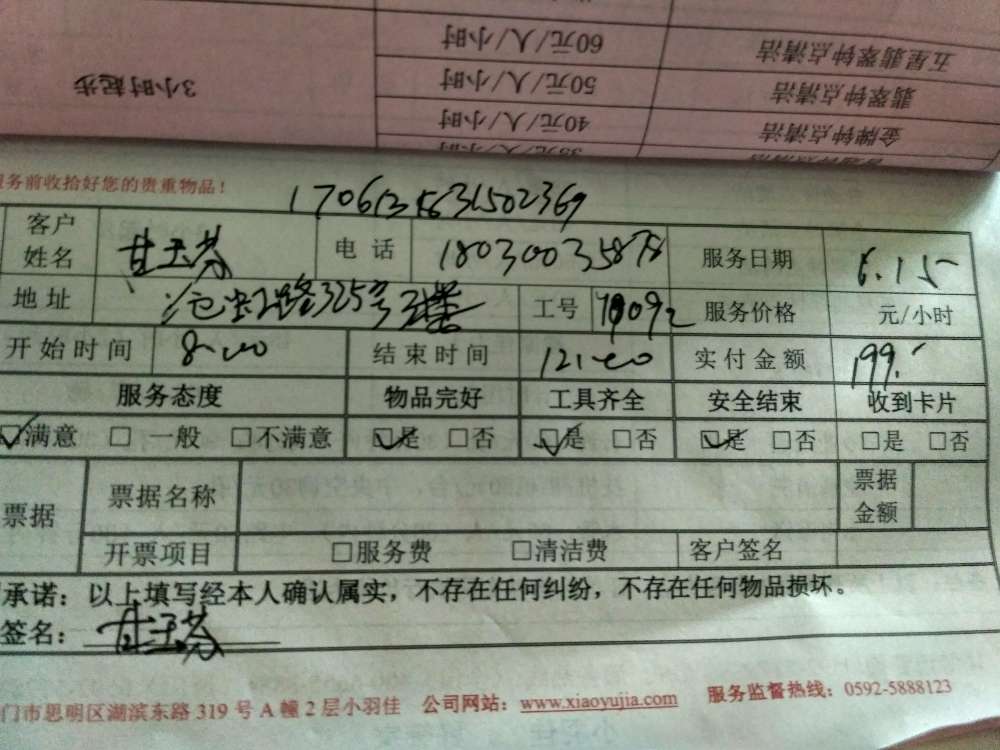 五星翡翠钟点清洁 60元/人/小时
翡翠钟点清洁 50元/人/小时 3小时起步
金牌钟点清洁 40元/人/小时
服务前收拾好您的贵重物品!
客户姓名 甘玉芬 电话 服务日期 6.15
地址 路325号 工号 服务价格 元/小时
开始时间 8:00 结束时间 12:00 实付金额 199.
服务态度 物品完好 工具齐全 安全结束 收到卡片
☑满意 □一般 □不满意 ☑是 □否 ☑是 □否 ☑是 □否 □是 □否
票据 票据名称 票据金额
开票项目 □服务费 □清洁费 客户签名
承诺:以上填写经本人确认属实,不存在任何纠纷,不存在任何物品损坏。
签名: 甘玉芬
门市思明区湖滨东路 319 号 A 幢 2 层小羽佳 公司网站:www.xiaoyujia.com 服务监督热线:0592-5888123